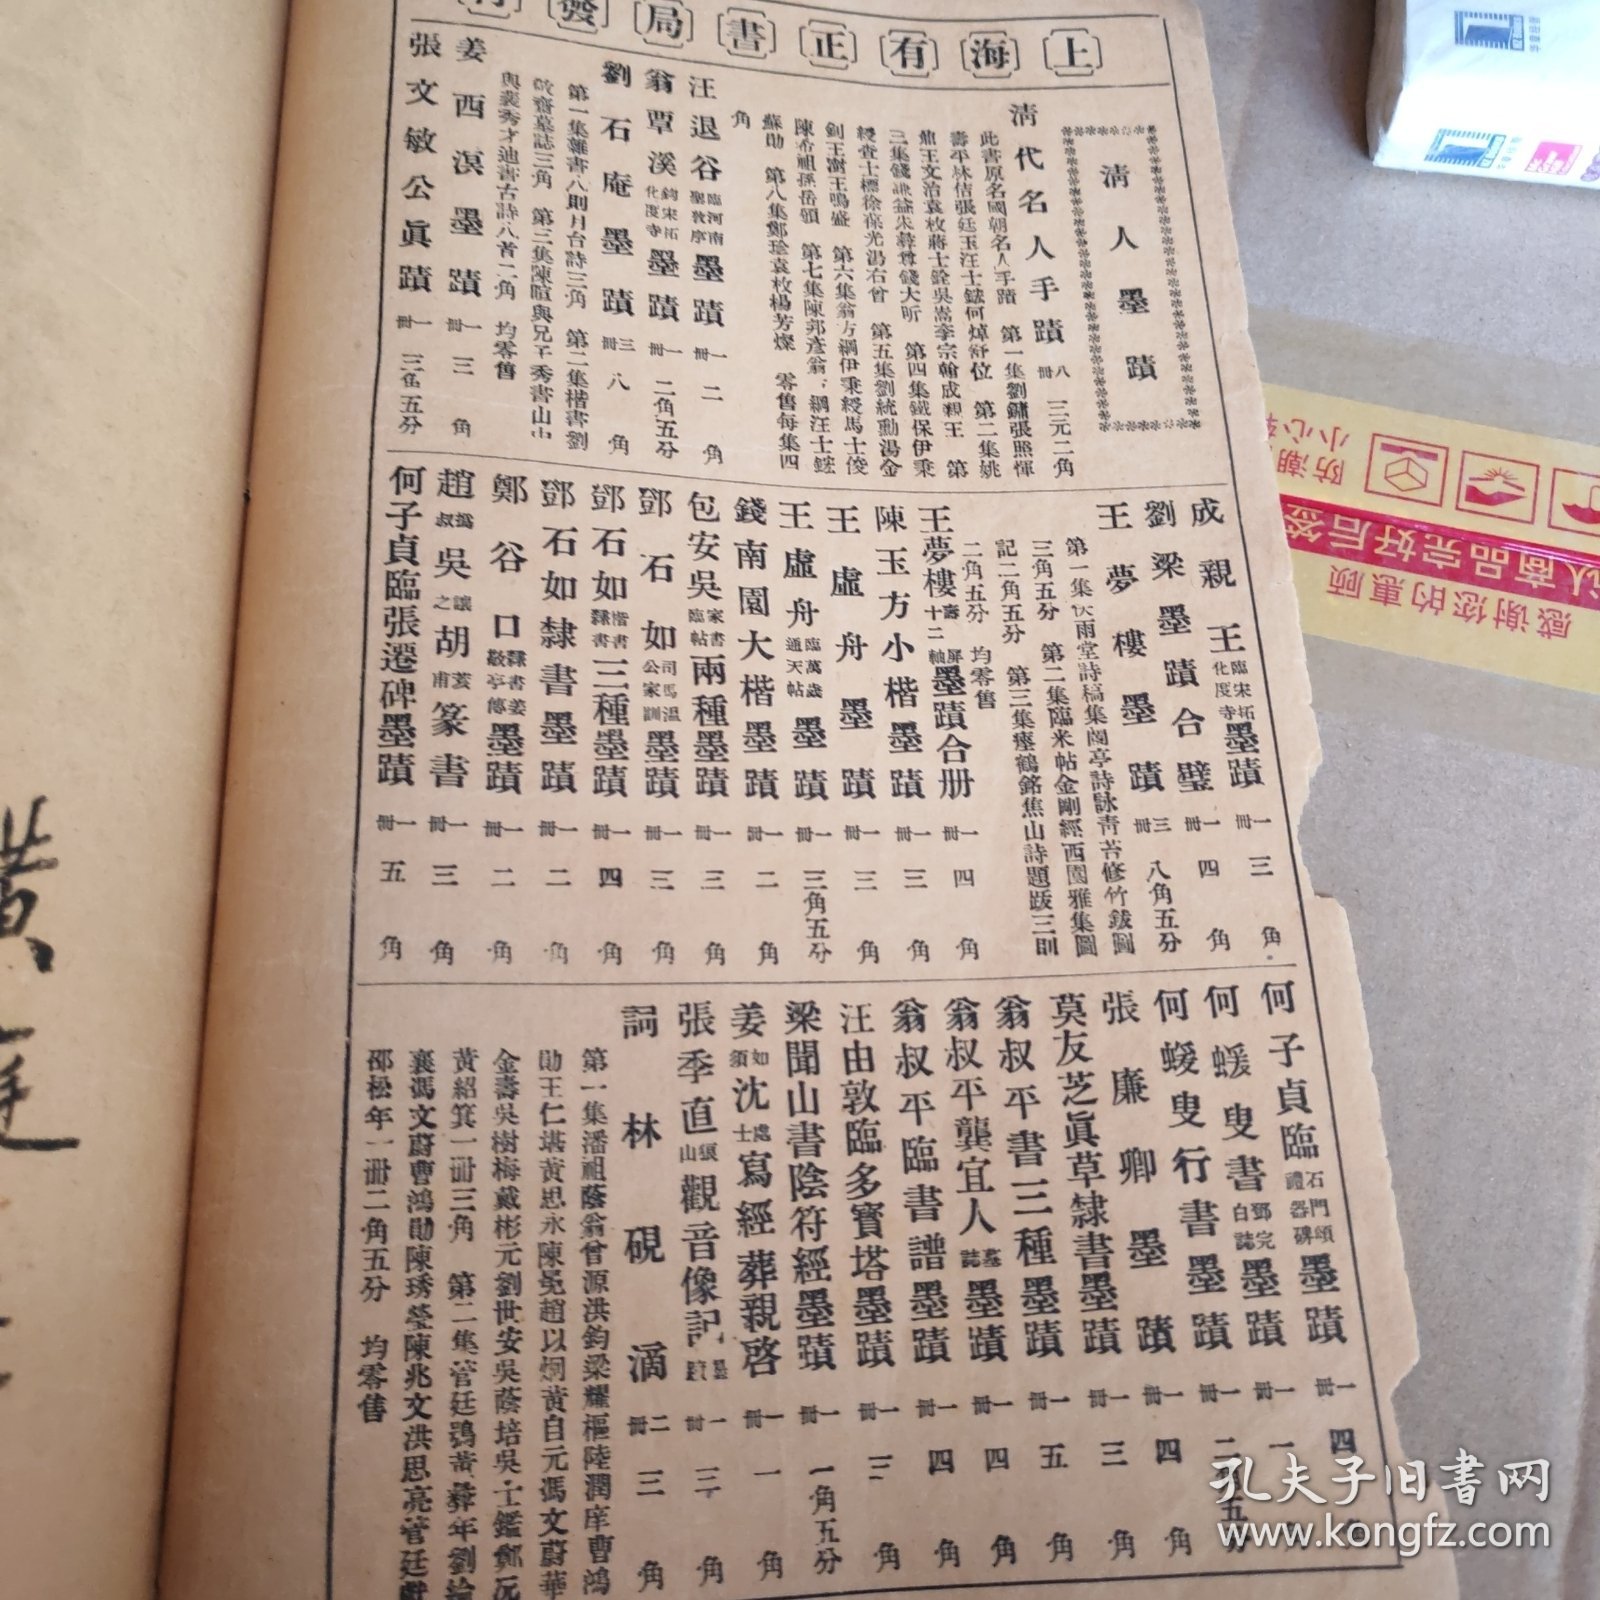 上海有正書局發
清人墨蹟
清代名人手蹟 八冊 三元二角
此書原名國朝名人手蹟 第一集劉鏞張照惲
壽平林佶張廷玉汪士鋐何焯舒位 第二集姚
鼐王文治袁枚蔣士銓吳嵩李宗翰成親王 第
三集錢謙益朱彝尊錢大昕 第四集鐵保伊秉
綬查士標徐葆光湯右曾 第五集劉統勳湯金
釗王澍王鳴盛 第六集翁方綱伊秉綬馬士俊
陳希祖孫岳頒 第七集陳邦彥翁方綱汪士鋐
蘇勛 第八集鄭瑜袁枚楊芳燦 零售每集四
角
汪退谷臨河南聖教序墨蹟 一冊 二角
翁覃溪鉤宋拓化度寺墨蹟 一冊 二角五分
劉石庵墨蹟 三冊 八角
第一集雜書八則月台詩三角 第二集楷書劉
敬齋墓誌三角 第三集陳暄與兄子秀書山中
與裴秀才迪書古詩八首二角 均零售
姜西溟墨蹟 一冊 三角
張文敏公眞蹟 一冊 三角五分
成親王臨宋拓化度寺墨蹟 一冊 三角
劉梁墨蹟合璧 一冊 四角
王夢樓墨蹟 三冊 八角五分
第一集快雨堂詩稿集闊亭詩詠青苔修竹鈸圖
三角五分 第二集臨米帖金剛經西園雅集圖
記二角五分 第三集瘞鶴銘焦山詩題跋三則
二角五分 均零售
王夢樓壽屏十二軸墨蹟合册 一冊 四角
陳玉方小楷墨蹟 一冊 三角
王虛舟墨蹟 一冊 三角
王虛舟臨萬歲通天帖墨蹟 一冊 三角五分
錢南園大楷墨蹟 一冊 二角
包安吳家書臨帖兩種墨蹟 一冊 三角
鄧石如司馬溫公家訓墨蹟 一冊 三角
鄧石如楷書隸書三種墨蹟 一冊 四角
鄧石如隸書墨蹟 一冊 二角
鄭谷口隸書姜敬亭傳墨蹟 一冊 二角
趙撝叔吳讓之胡荄甫篆書 一冊 三角
何子貞臨張遷碑墨蹟 一冊 五角
何子貞臨石門頌禮器碑墨蹟 一冊 四角
何蝯叟書鄧完白誌墨蹟 一冊 一
何蝯叟行書墨蹟 一冊 二角五分
張廉卿墨蹟 一冊 四角
莫友芝眞草隸書墨蹟 一冊 三角
翁叔平書三種墨蹟 一冊 五角
翁叔平龔宜人墓誌墨蹟 一冊 四角
翁叔平臨書譜墨蹟 一冊 四角
汪由敦臨多寶塔墨蹟 一冊 三角
梁聞山書陰符經墨蹟 一冊 一角五分
姜如須沈處士寫經葬親啓 一冊 一角
張季直狼山觀音像記墨蹟 一冊 三角
詞林硯滴 二冊 三角
第一集潘祖蔭翁曾源洪鈞梁耀樞陸潤庠曹鴻
勛王仁堪黃思永陳冕趙以炯黃自元馮文蔚華
金壽吳樹梅戴彬元劉世安吳蔭培吳士鑑鄭沅
黃紹箕一冊三角 第二集管廷鶚黃彝年劉
襄馮文蔚曹鴻勛陳琇瑩陳兆文洪思亮管廷獻
邵松年一冊二角五分 均零售
黃庭
感谢您的惠顾
认商品完好后签
小心
防潮
孔夫子旧书网
www.kongfz.com